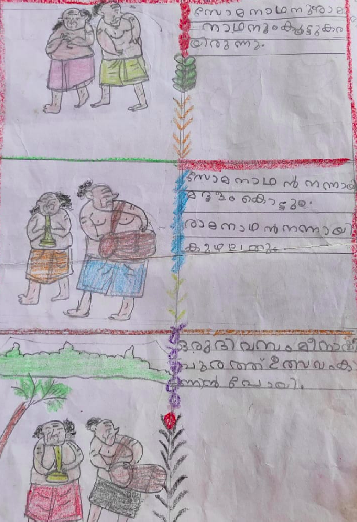 സോമനാഥനുംരാമ
നാഥനുംകൂട്ടുകാര
യിരുന്നു.
സോമനാഥൻ നന്നായ
മദ്ദളം കൊട്ടും.
രാമനാഥൻ നന്നായ
കുഴലൂതും
ഒരു ദിവസം മീനാക്ഷി
പുരത്ത് ഉത്സവംക
ന്നൻ പോയി.